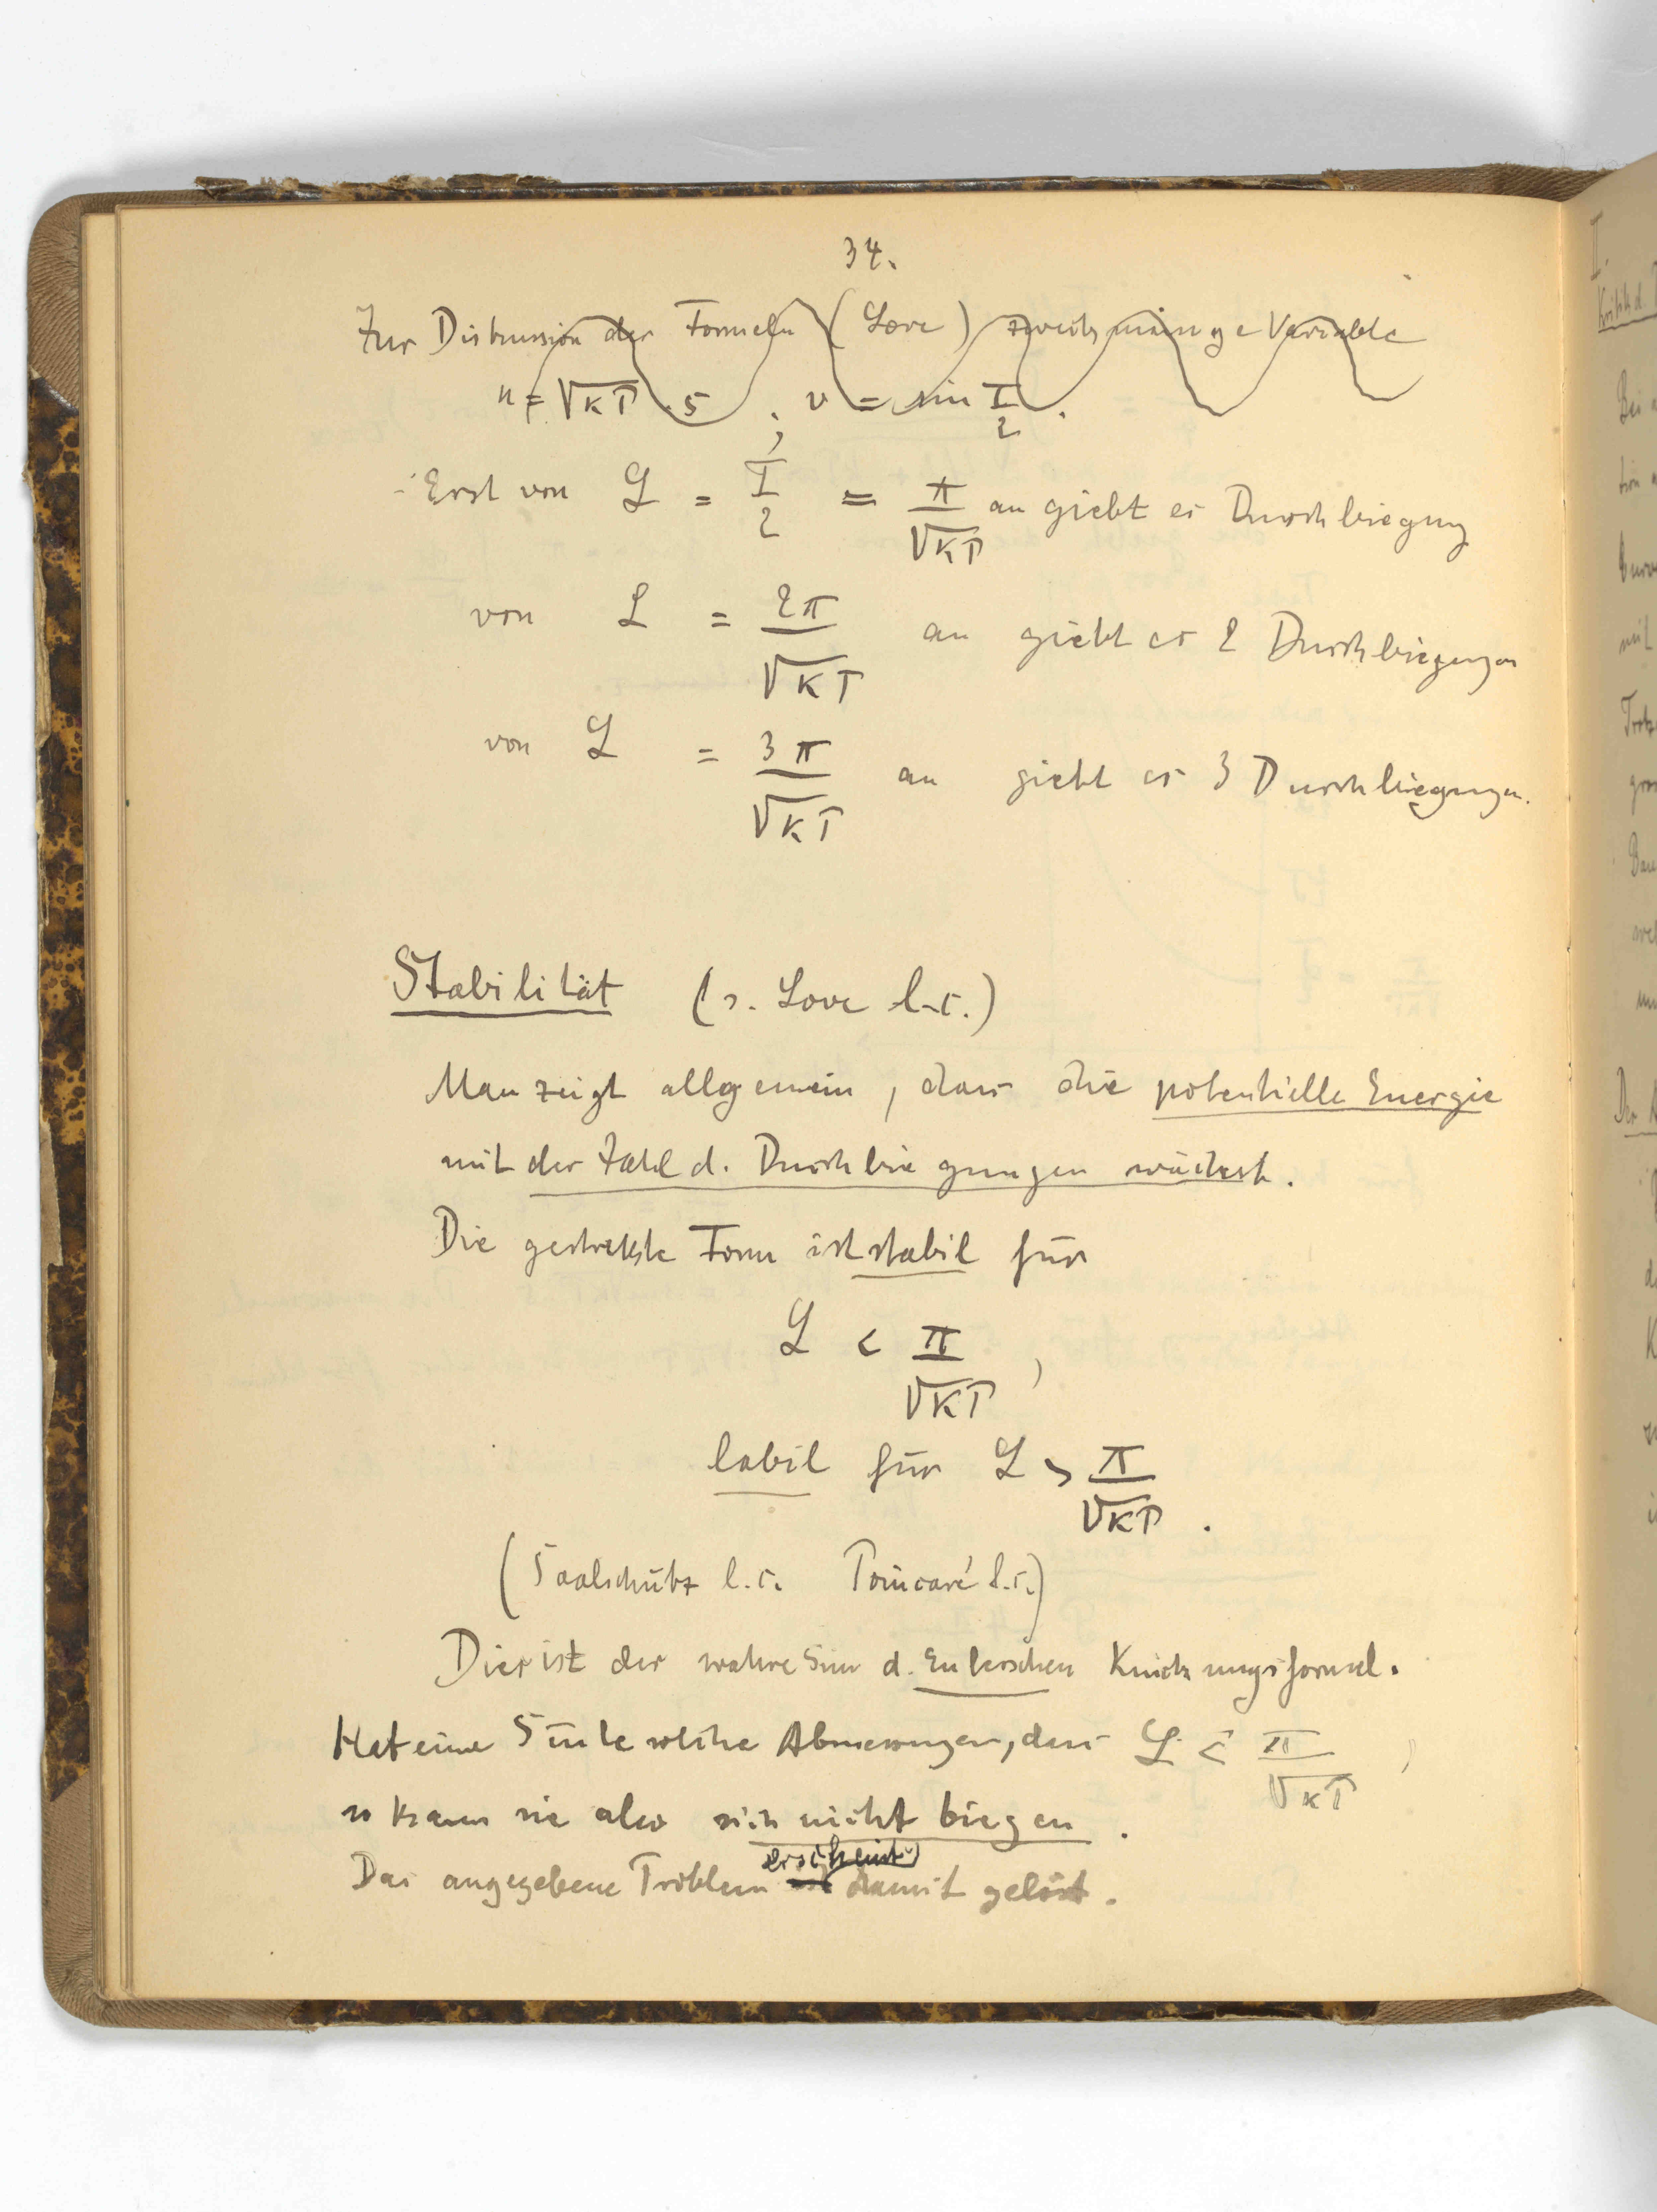 34.
Zur Diskussion der Formeln (Love) zweckmässige Variable
u = √KP · s ; v = sin I/2 .
Erst von L = I/2 = π/√KP an giebt es Durchbiegung
von L = 2π/√KP an giebt es 2 Durchbiegungen
von L = 3π/√KP an giebt es 3 Durchbiegungen.
Stabilität (s. Love l.c.)
Man zeigt allgemein, dass die potentielle Energie
mit der Zahl d. Durchbiegungen wächst.
Die gestreckte Form ist stabil für
L < π/√KP ,
labil für L > π/√KP .
(Saalschütz l.c. Poincaré l.c.)
Dies ist der wahre Sinn d. Eulerschen Knickungsformel.
Hat eine Säule solche Abmessungen, dass L < π/√KP ,
so kann sie also sich nicht biegen .
erscheint
Das angegebene Problem damit gelöst .